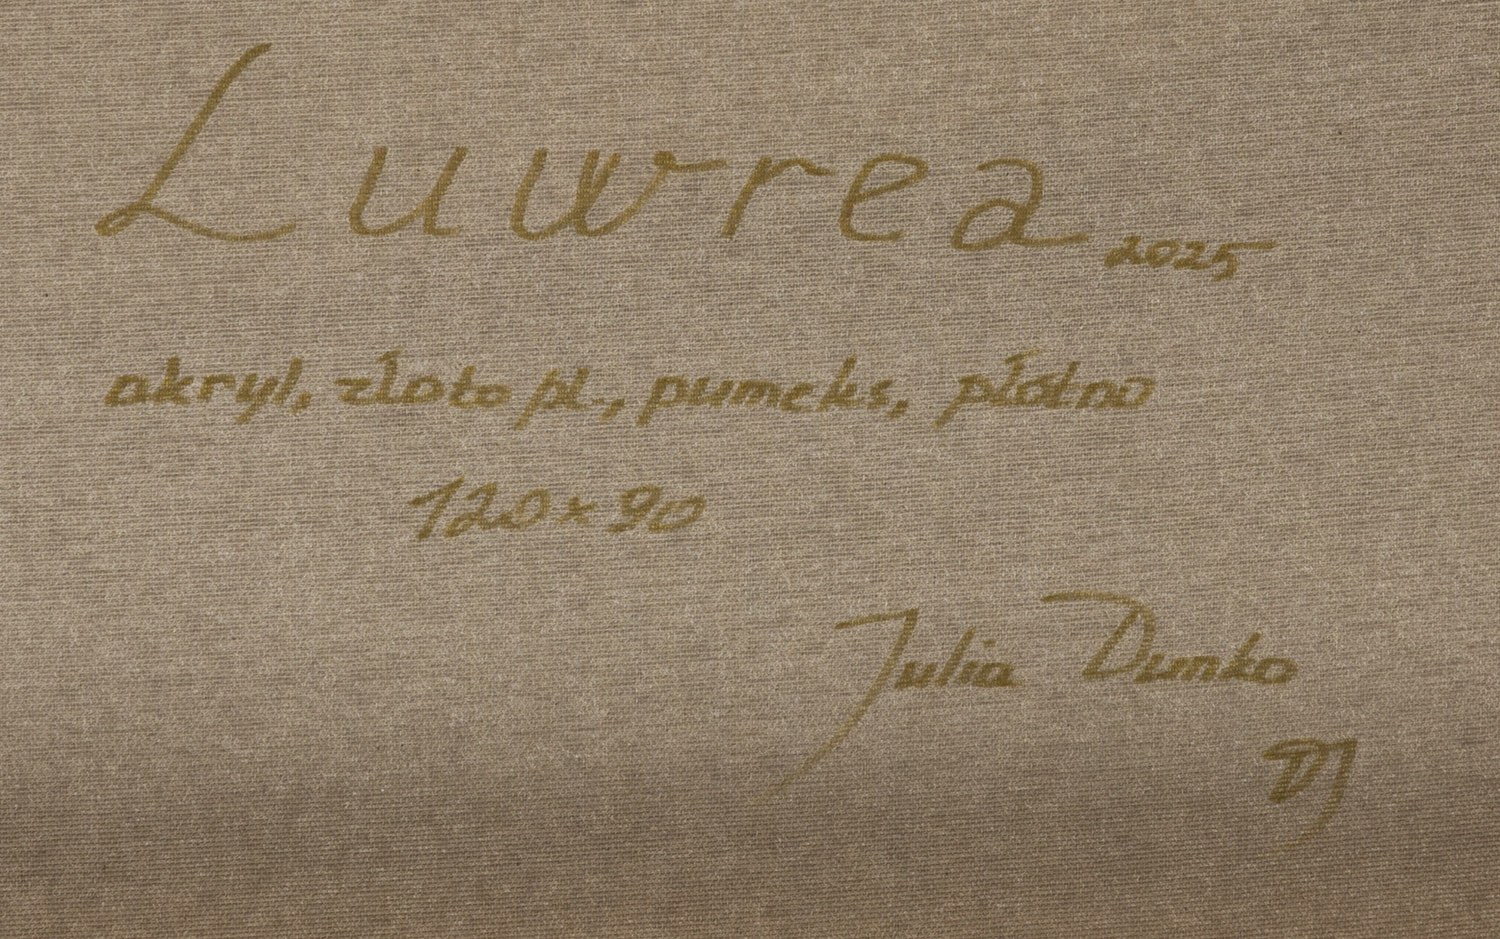 Luwrea 2025
akryl, złoto pł., pumeks, płótno
120 x 90
Julia Dunko
DJ